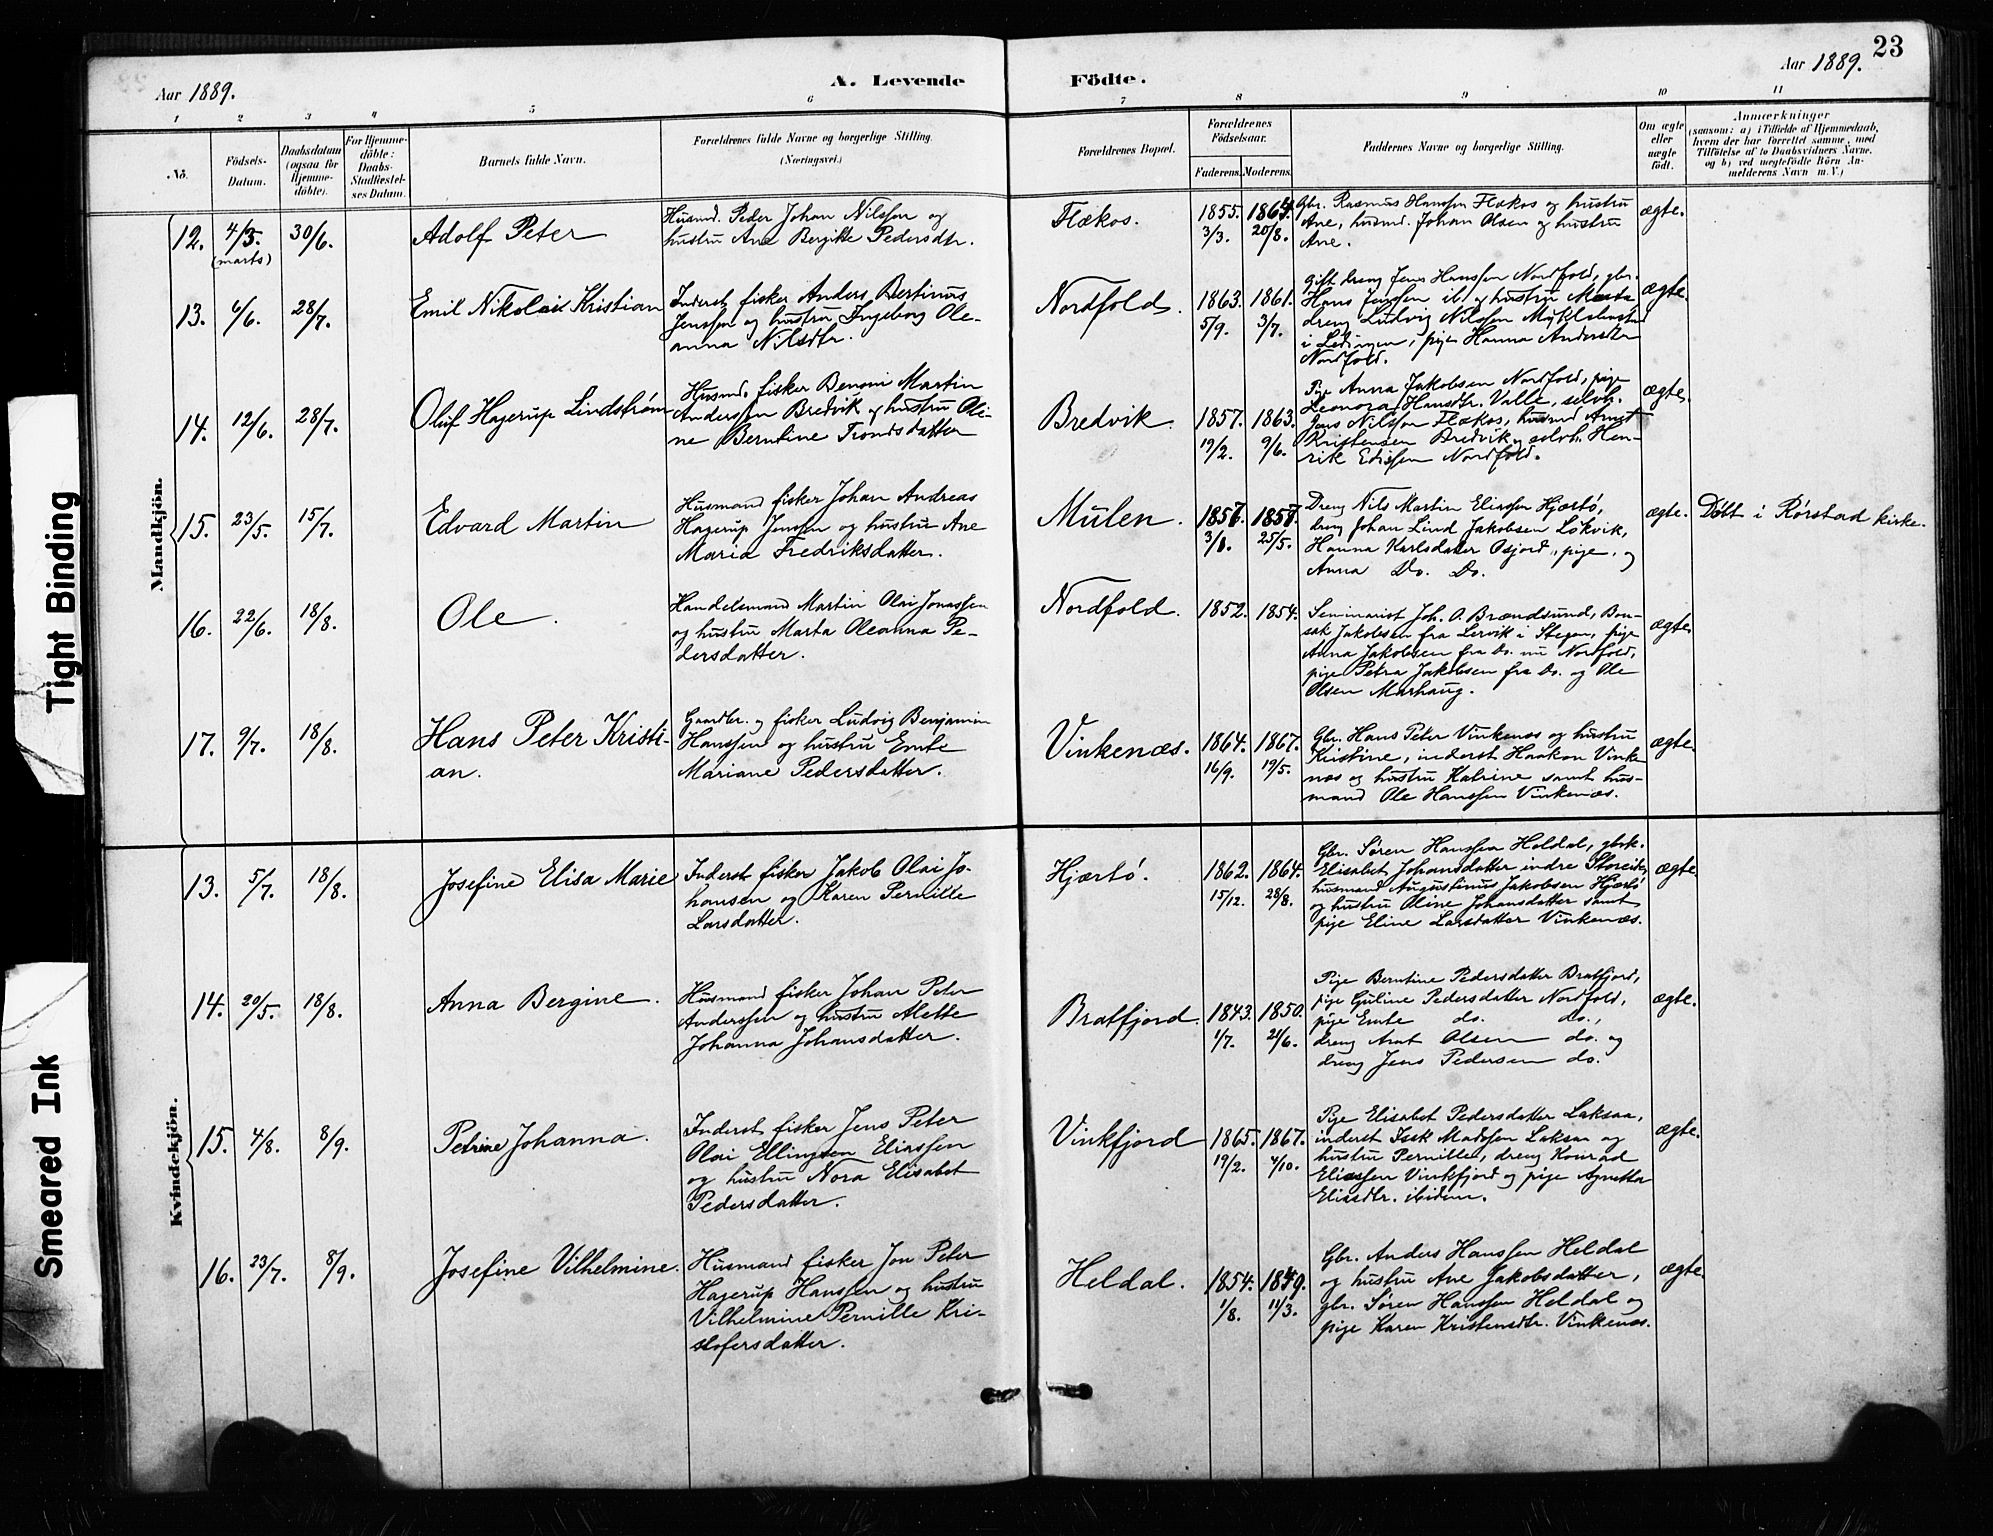 23
Aar 1889.
A. Levende
Födte.
Aar 1889.
1
2
3
4
5
6
7
8
9
10
11
No.
Födsels-
Datum.
Daabsdatum
(ogsaa for
Hjemme-
döbte).
For Hjemme-
döbte:
Daabs-
Stadfæstel-
ses Datum.
Barnets fulde Navn.
Forældrenes fulde Navne og borgerlige Stilling.
(Næringsvei.)
Forældrenes Bopæl.
Forældrenes
Födselsaar.
Faderens.
Moderens.
Faddernes Navne og borgerlige Stilling.
Om ægte
eller
uægte
födt.
Anmærkninger
(saasom: a) i Tilfælde af Hjemmedaab,
hvem der har forrettet samme, med
Tilföielse af to Daabsvidners Navne.
og b) ved uægtefödte Börn An-
melderens Navn m. V.)
Mandkjön.
12.
4/3.
(marts)
30/6.
Adolf Peter
Husmd. Peder Johan Nilssen og
hustru Ane Bergitte Pedersdtr.
Flækos.
1855.
3/3.
1864.
20/8.
Gbr. Rasmus Hanssen Flækos og hustru
Ane, husmd. Johan Olsen og hustru
Ane.
ægte.
13.
6/6.
28/7.
Emil Nikolai Kristian
Inderst fisker Anders Bertinus
Jenssen og hustru Ingeborg Ole-
anna Nilsdtr.
Nordfold.
1863.
5/9.
1861.
3/7.
Gift dreng Jens Hanssen Nordfold, gbr.
Hans Jenssen ib. og hustru Marta
dreng Ludvig Nilssen Myklebostad
i Ledingen, pige Hanna Andersdtr
Nordfold.
ægte.
14.
12/6.
28/7.
Oluf Hagerup Lindstrøm
Husmd. fisker Benoni Martin
Anderssen Bredvik og hustru Oli-
ne Berntine Trondsdatter
Bredvik.
1857.
19/2.
1863.
9/6.
Pige Anna Jakobsen Nordfold, pige
Leonora Hansdtr. Valle, selvb.
Jens Nilssen Flækos, husmd Arnt
Kristensen Bredvik og selvb. Hen-
rik Edissen Nordfold.
ægte.
15.
23/5.
15/7.
Edvard Martin
Husmand fisker Johan Andreas
Hagerup Jenssen og hustru Ane
Maria Fredriksdatter.
Mulen.
25/5.
Dreng Nils Martin Eliassen Hjærtö,
dreng Johan Lind Jakobsen Løkvik,
Hanna Karlsdatter Osjord, pige, og
Anna Do. Do.
ægte.
Døbt i Rørstad kirke.
16.
22/6.
18/8.
Ole.
Handelsmand Martin Olai Jonassen
og hustru Marta Oleanna Pe-
dersdatter.
Nordfold.
1852.
1854.
Seminarist Joh. O. Brændsund, Bon-
sak Jakobsen fra Lervik i Stegen, pige
Anna Jakobsen fra Do. nu Nordfold,
pige Petra Jakobsen fra Do. og Ole
Olsen Marhaug.
ægte.
17.
9/7.
18/8.
Hans Peter Kristi-
an.
Gaardbr. og fisker Ludvig Benjamin
Hanssen og hustru Emte
Mariane Pedersdatter.
Vinkenæs.
1864.
16/9.
1867.
19/5.
Gbr. Hans Peter Vinkenæs og hustru
Kristine, inderst Haakon Vinke-
næs og hustru Katrine samt hus-
mand Ole Hanssen Vinkenæs.
ægte.
Kvindekjön.
13.
5/7.
18/8.
Josefine Elisa Marie
Inderst fisker Jakob Olai Jo-
hansen og Karen Pernitte
Larsdatter.
Hjærtö.
1862.
15/12.
1864.
28/8.
Gbr. Søren Hanssen Heldal, gbrk.
Elisabet Johansdatter indre Storeide,
husmand Augustinus Jakobsen Hjærtö
og hustru Oline Johansdatter samt
pige Eline Larsdatter Vinkenæs.
ægte.
14.
20/5.
18/8.
Anna Bergine.
Husmand fisker Johan Peter
Anderssen og hustru Alette
Johanna Johansdatter.
Bratfjord.
1843.
1/7.
1850.
21/6.
Pige Berntine Pedersdatter Bratfjord,
pige Guline Pedersdatter Nordfold,
pige Emte do. do.,
dreng Arnt Olsen do. og
dreng Jens Pedersen do.
ægte.
15.
4/8.
8/9.
Petrine Johanna.
Inderst fisker Jens Peter
Olai Ellingsen Eliassen
og hustru Nora Elisabet
Pedersdatter.
Vinkfjord
1865.
19/2.
1867.
4/10.
Pige Elisabet Pedersdatter Laksaa,
inderst Isak Madssen Laksaa og
hustru Pernille, dreng Konrad
Eliassen Vinkfjord og pige Agnetta
Eliasdtr. ibidem.
ægte.
16.
23/7.
8/9.
Josefine Vilhelmine.
Husmand fisker Jon Peter
Hagerup Hanssen og hustru
Vilhelmine Pernille Kri-
stofersdatter.
Heldal.
1854.
1/8.
1849.
11/3.
Gbr. Anders Hanssen Heldal
og hustru Ane Jakobsdatter,
gbr. Søren Hanssen Heldal og
pige Karen Kristensdtr. Vinkenæs.
ægte.
Tight Binding
Smeared Ink